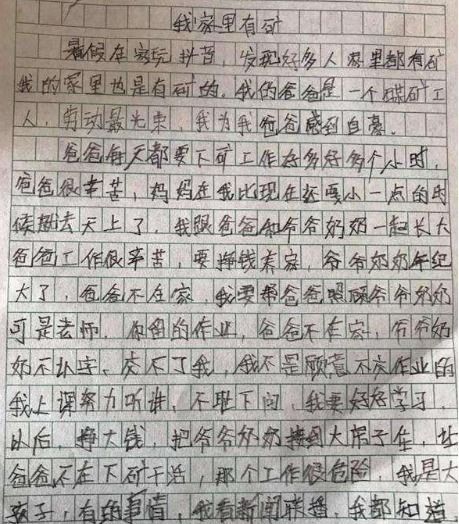 我家里有矿
暑假在家玩抖音，发现好多人家里都有矿
我的家里也是有矿的，我的爸爸是一个煤矿工
人，劳动最光荣，我为我爸爸感到自豪。
爸爸每天都要下矿工作好多好多个小时，
爸爸很辛苦，妈妈在我比现在还要小一点的时
候就去天上了，我跟爸爸和爷爷奶奶一起长大
爸爸工作很辛苦，要挣钱养家，爷爷奶奶年纪
大了，爸爸不在家，我要帮爸爸照顾爷爷奶奶
可是老师，你留的作业，爸爸不在家，爷爷奶
奶不认字，交不了我，我不是愿意不交作业的
我上课努力听讲，不耻下问，我要好好学习，
以后，挣大钱，把爷爷奶奶接到大房子住，让
爸爸不在下矿干活，那个工作很危险，我是大
孩子，有些事情，我看新闻联播，我都知道，